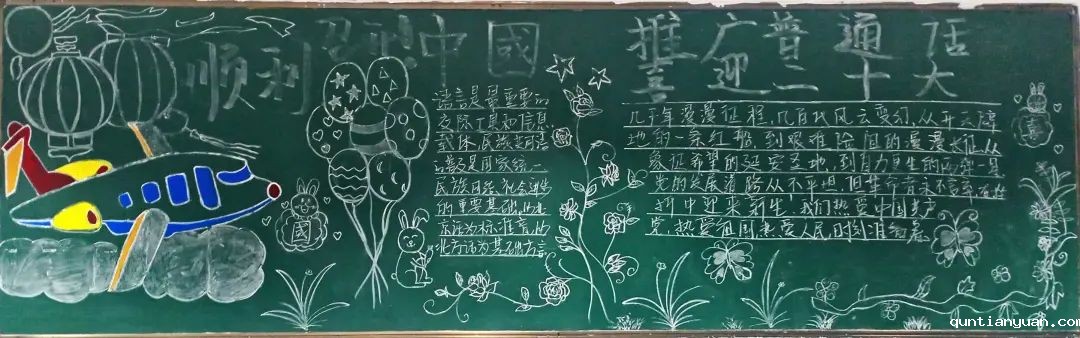 顺利 中國
推广普通话
喜迎二十大
语言是最重要的
交际工具和信息
载体,民族共同语
言是国家统一
民族团结,社会进步
的重要基础,以北
京语音为标准音,以
北方话为基础方言
几千年漫漫征程,几百代风云变幻,从开天辟
地的一条红船,到艰难险阻的漫漫长征,从
象征希望的延安圣地,到自力更生的
党的发展道路从不平坦,但革命者永不言
中迎来新生,我们热爱中国共产
党,热爱祖国热爱人民,时刻准备着
國
喜
quntianyuan.com